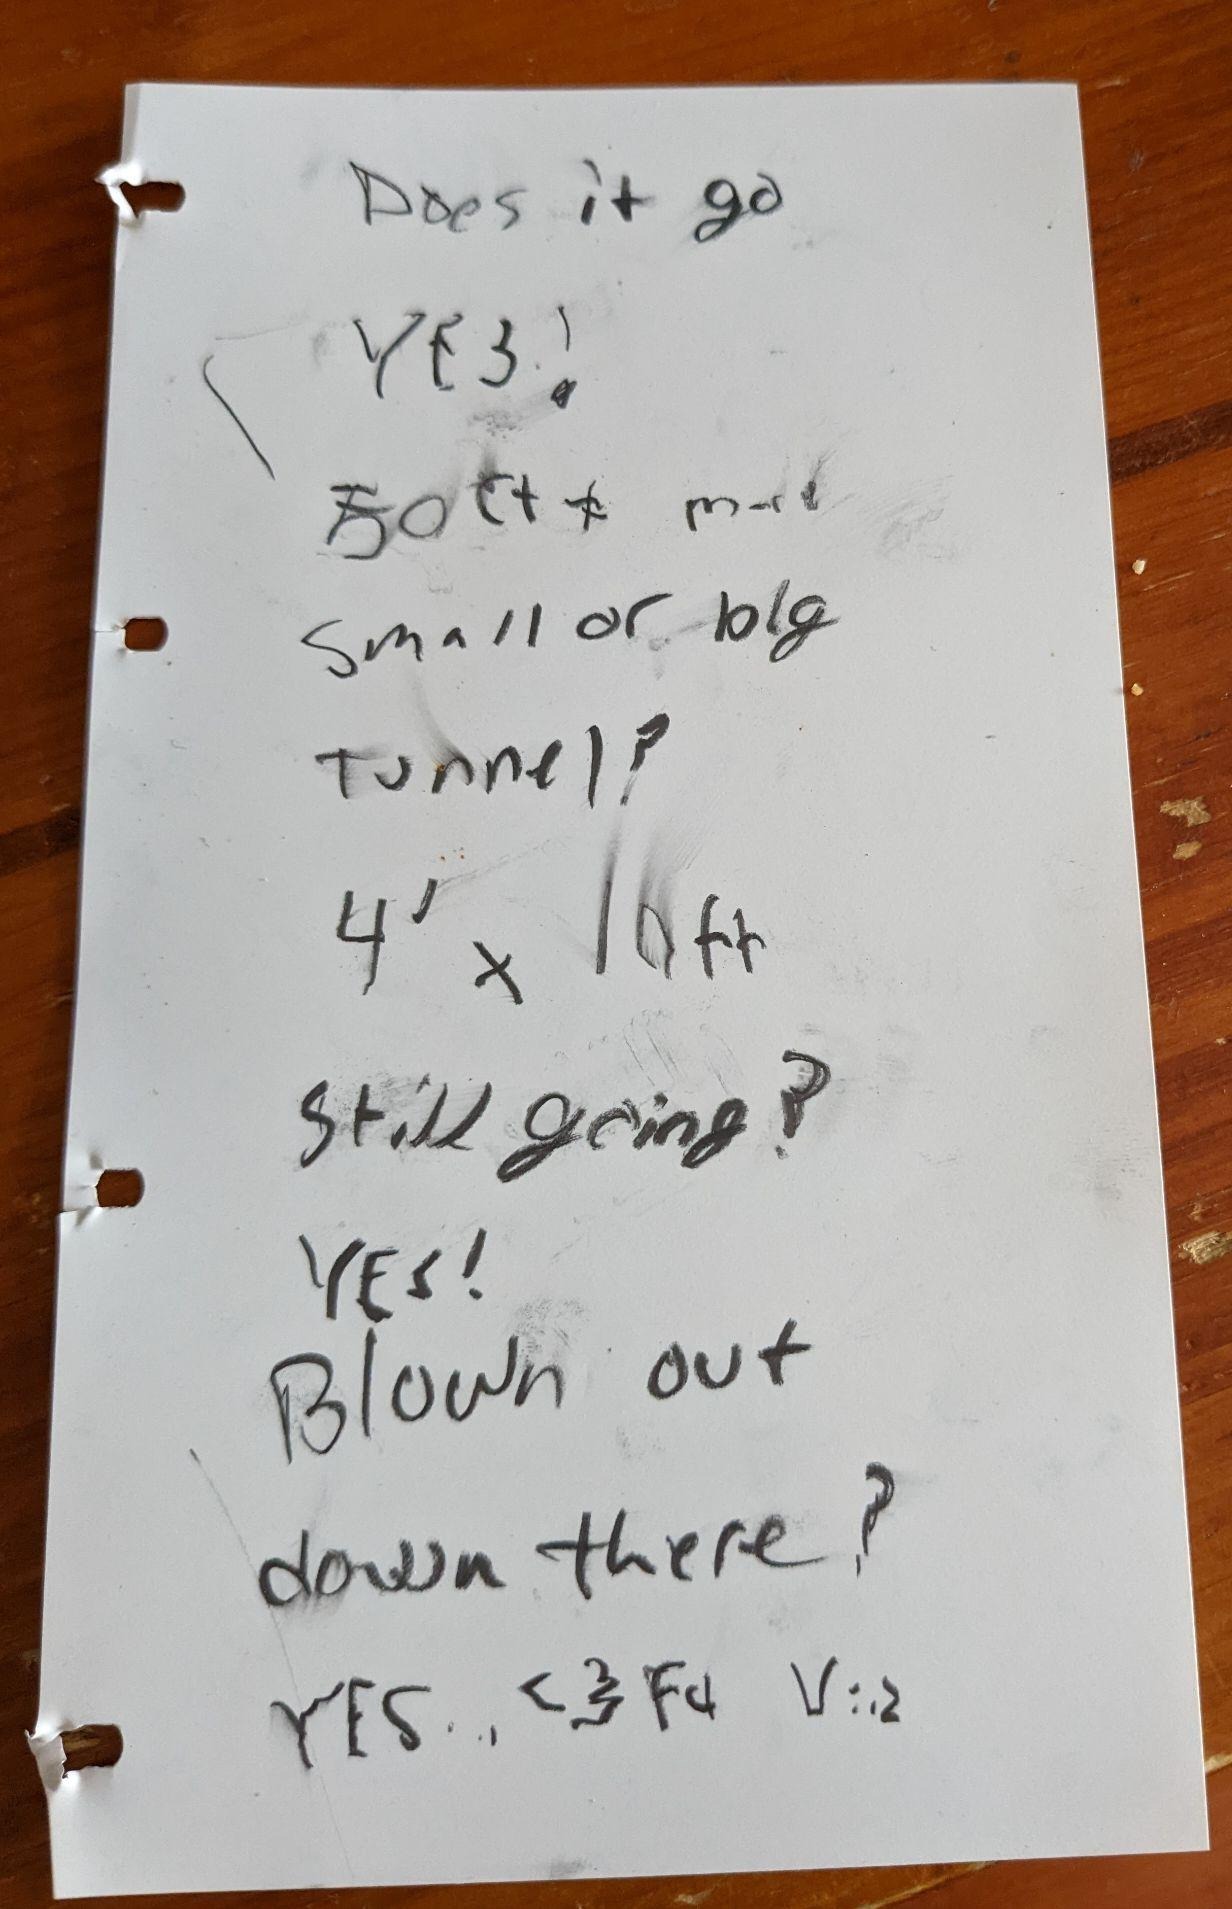 Does it go
YES!
50 ft +
Small or big
Tunnel?
4' x 10 ft
Still going?
YES!
Blown out
down there?
YES... <3 F4